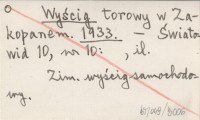 Wyścig torowy w Za-
kopanem. 1933. - Świato-
wid 10, nr 10: , il.
Zim. wyścig samochodo-
wy.